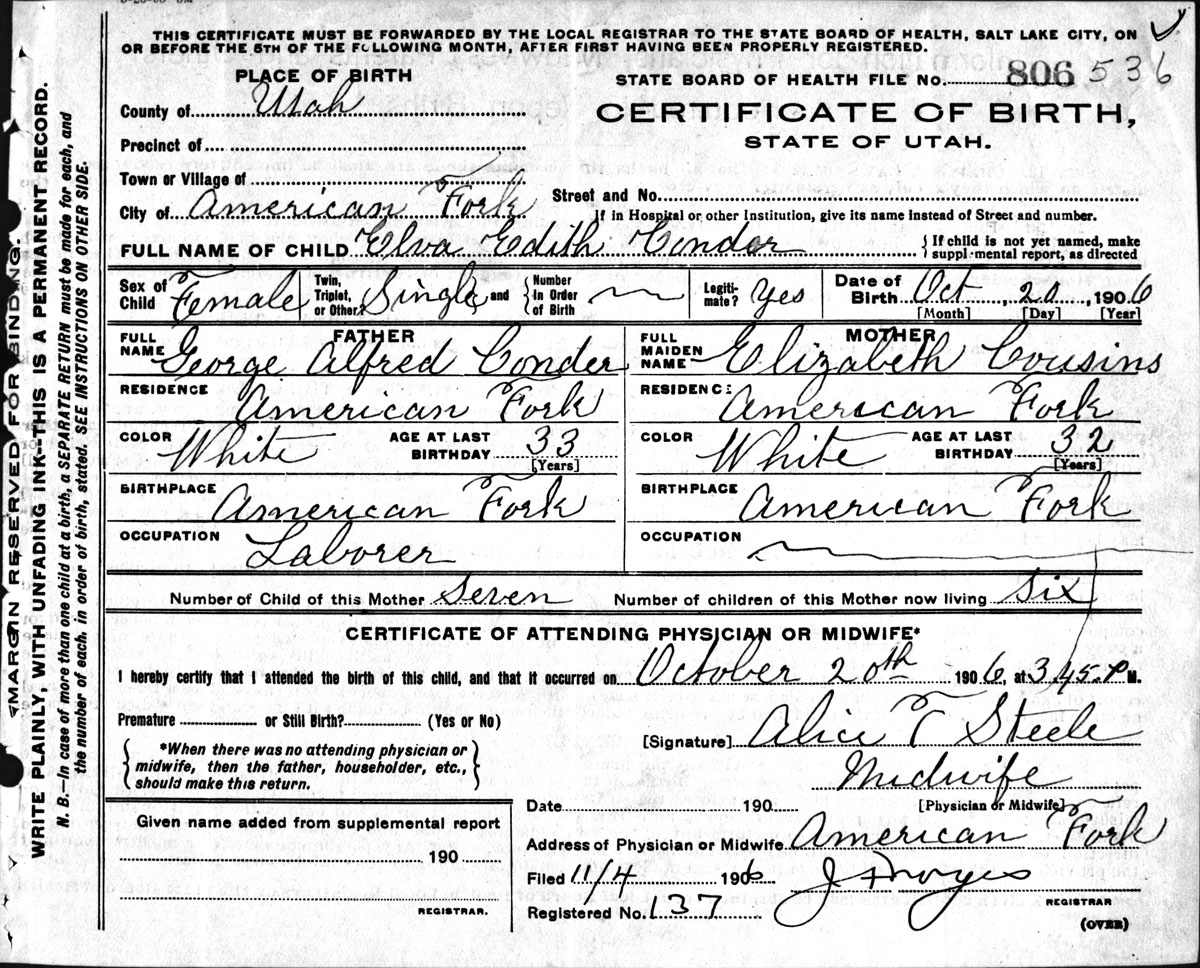 THIS CERTIFICATE MUST BE FORWARDED BY THE LOCAL REGISTRAR TO THE STATE BOARD OF HEALTH, SALT LAKE CITY, ON
OR BEFORE THE 5TH OF THE FOLLOWING MONTH, AFTER FIRST HAVING BEEN PROPERLY REGISTERED.
PLACE OF BIRTH
STATE BOARD OF HEALTH FILE No. 806 536
County of Utah
CERTIFICATE OF BIRTH,
STATE OF UTAH.
Precinct of
Town or Village of
City of American Fork
Street and No.
If in Hospital or other Institution, give its name instead of Street and number.
FULL NAME OF CHILD Elva Edith Conder
{ If child is not yet named, make
supplemental report, as directed
Sex of Child Female
Twin, Triplet, or Other? Single and { Number in Order of Birth
Legitimate? Yes
Date of Birth Oct, 20, 1906
[Month] [Day] [Year]
FATHER
FULL NAME George Alfred Conder
RESIDENCE American Fork
COLOR White AGE AT LAST BIRTHDAY 33
[Years]
BIRTHPLACE American Fork
OCCUPATION Laborer
MOTHER
FULL MAIDEN NAME Elizabeth Cousins
RESIDENCE American Fork
COLOR White AGE AT LAST BIRTHDAY 32
[Years]
BIRTHPLACE American Fork
OCCUPATION
Number of Child of this Mother Seven Number of children of this Mother now living Six
CERTIFICATE OF ATTENDING PHYSICIAN OR MIDWIFE*
I hereby certify that I attended the birth of this child, and that it occurred on October 20th 1906, at 3.45 P M.
Premature or Still Birth? (Yes or No)
{ *When there was no attending physician or
midwife, then the father, householder, etc.,
should make this return. }
[Signature] Alice T Steele
Midwife
[Physician or Midwife]
Date 190
Address of Physician or Midwife American Fork
Given name added from supplemental report
190
REGISTRAR.
Filed 11/4 1906 J
REGISTRAR
Registered No. 137
(OVER)
MARGIN RESERVED FOR BINDING.
WRITE PLAINLY, WITH UNFADING INK--THIS IS A PERMANENT RECORD.
N. B.—In case of more than one child at a birth, a SEPARATE RETURN must be made for each, and
the number of each, in order of birth, stated. SEE INSTRUCTIONS ON OTHER SIDE.